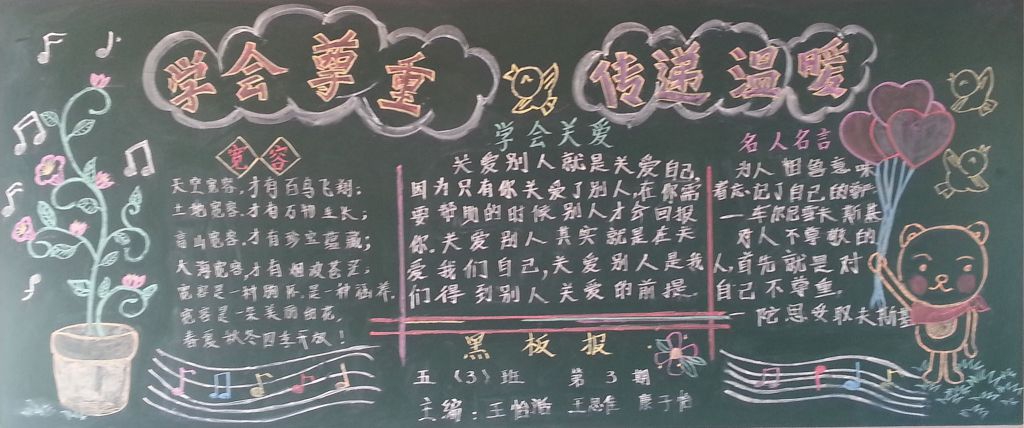 学会尊重
传递温暖
宽容
天空宽容,才有百鸟飞翔;
土地宽容,才有万物生长;
青山宽容,才有珍宝蕴藏;
大海宽容,才有烟波甚茫。
宽容是一种胸怀,是一种涵养.
宽容是一朵美丽的花,
春夏秋冬四季开放!
学会关爱
关爱别人就是关爱自己,
因为只有你关爱了别人,在你需
要帮助的时候别人才会回报
你.关爱别人其实就是在关
爱我们自己,关爱别人是我
们得到别人关爱的前提.
名人名言
为人
着忘记了自己的尊严
—车尔尼雪夫斯基
对人不尊敬的
人,首先就是对
自己不尊重.
—陀思妥耶夫斯基
黑板报
五(3)班 第3期
主编:王怡 王思佳 子怡